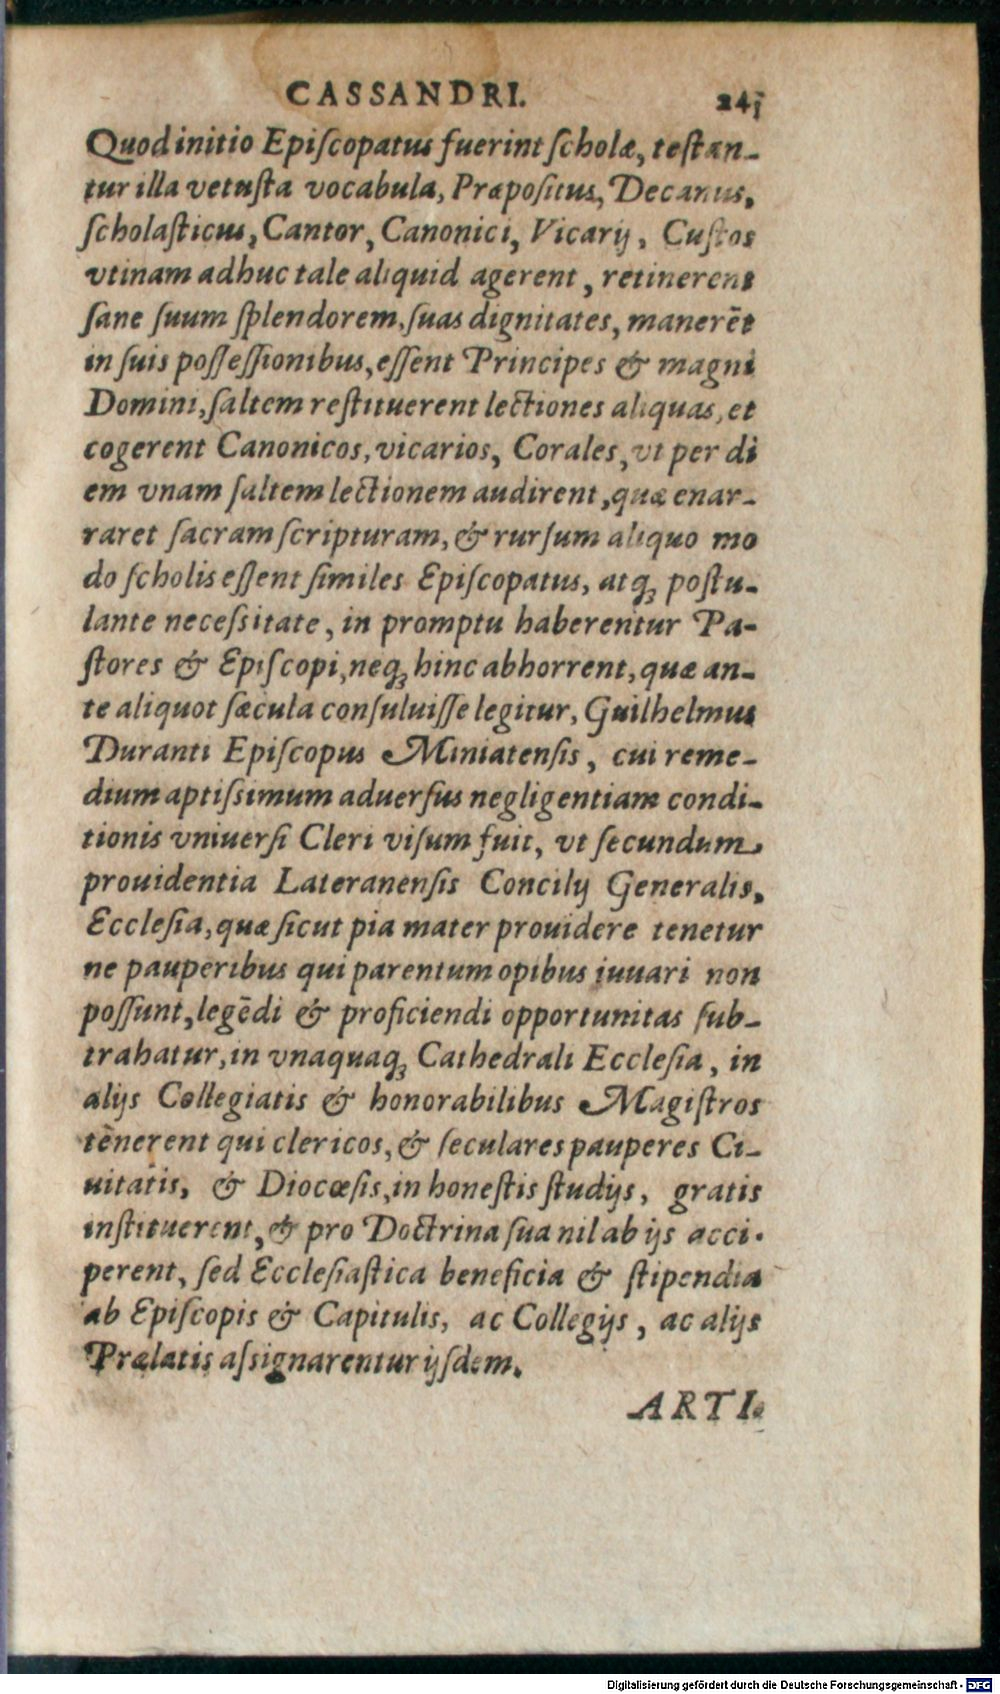 CASSANDRI. 241
Quod initio Episcopatus fuerint scholæ, testan-
tur illa vetusta vocabula, Præpositus, Decanus,
scholasticus, Cantor, Canonici, Vicarij, Custos
vtinam adhuc tale aliquid agerent, retinerent
sane suum splendorem, suas dignitates, manerēt
in suis possessionibus, essent Principes & magni
Domini, saltem restituerent lectiones aliquas, et
cogerent Canonicos, vicarios, Corales, vt per di
em vnam saltem lectionem audirent, quæ enar-
raret sacram scripturam, & rursum aliquo mo
do scholis essent similes Episcopatus, atq; postu-
lante necessitate, in promptu haberentur Pa-
stores & Episcopi, neq; hinc abhorrent, quæ an-
te aliquot sæcula consuluisse legitur, Guilhelmus
Duranti Episcopus Miniatensis, cui reme-
dium aptissimum aduersus negligentiam condi-
tionis vniuersi Cleri visum fuit, vt secundum
prouidentia Lateranensis Concilij Generalis,
Ecclesia, quæ sicut pia mater prouidere tenetur
ne pauperibus qui parentum opibus iuuari non
possunt, legēdi & proficiendi opportunitas sub-
trahatur, in vnaquaq; Cathedrali Ecclesia, in
alijs Collegiatis & honorabilibus Magistros
tenerent qui clericos, & seculares pauperes Ci-
uitatis, & Diocœsis, in honestis studijs, gratis
instituerent, & pro Doctrina sua nil ab ijs acci-
perent, sed Ecclesiastica beneficia & stipendia
ab Episcopis & Capitulis, ac Collegijs, ac alijs
Prælatis assignarentur ijsdem.
ARTI-
Digitalisierung gefördert durch die Deutsche Forschungsgemeinschaft - DFG